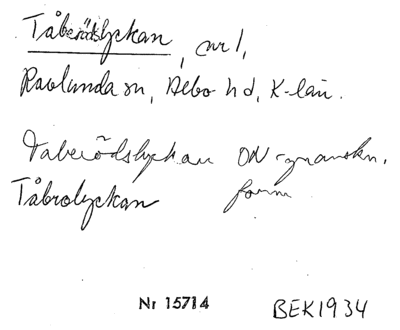 Tåberödslyckan, nr 1,
Ravlunda sn, Albo hd, K-län.
Taberödslyckan ON-granskn.
Tåbrolyckan form
Nr 15714 BEK1934